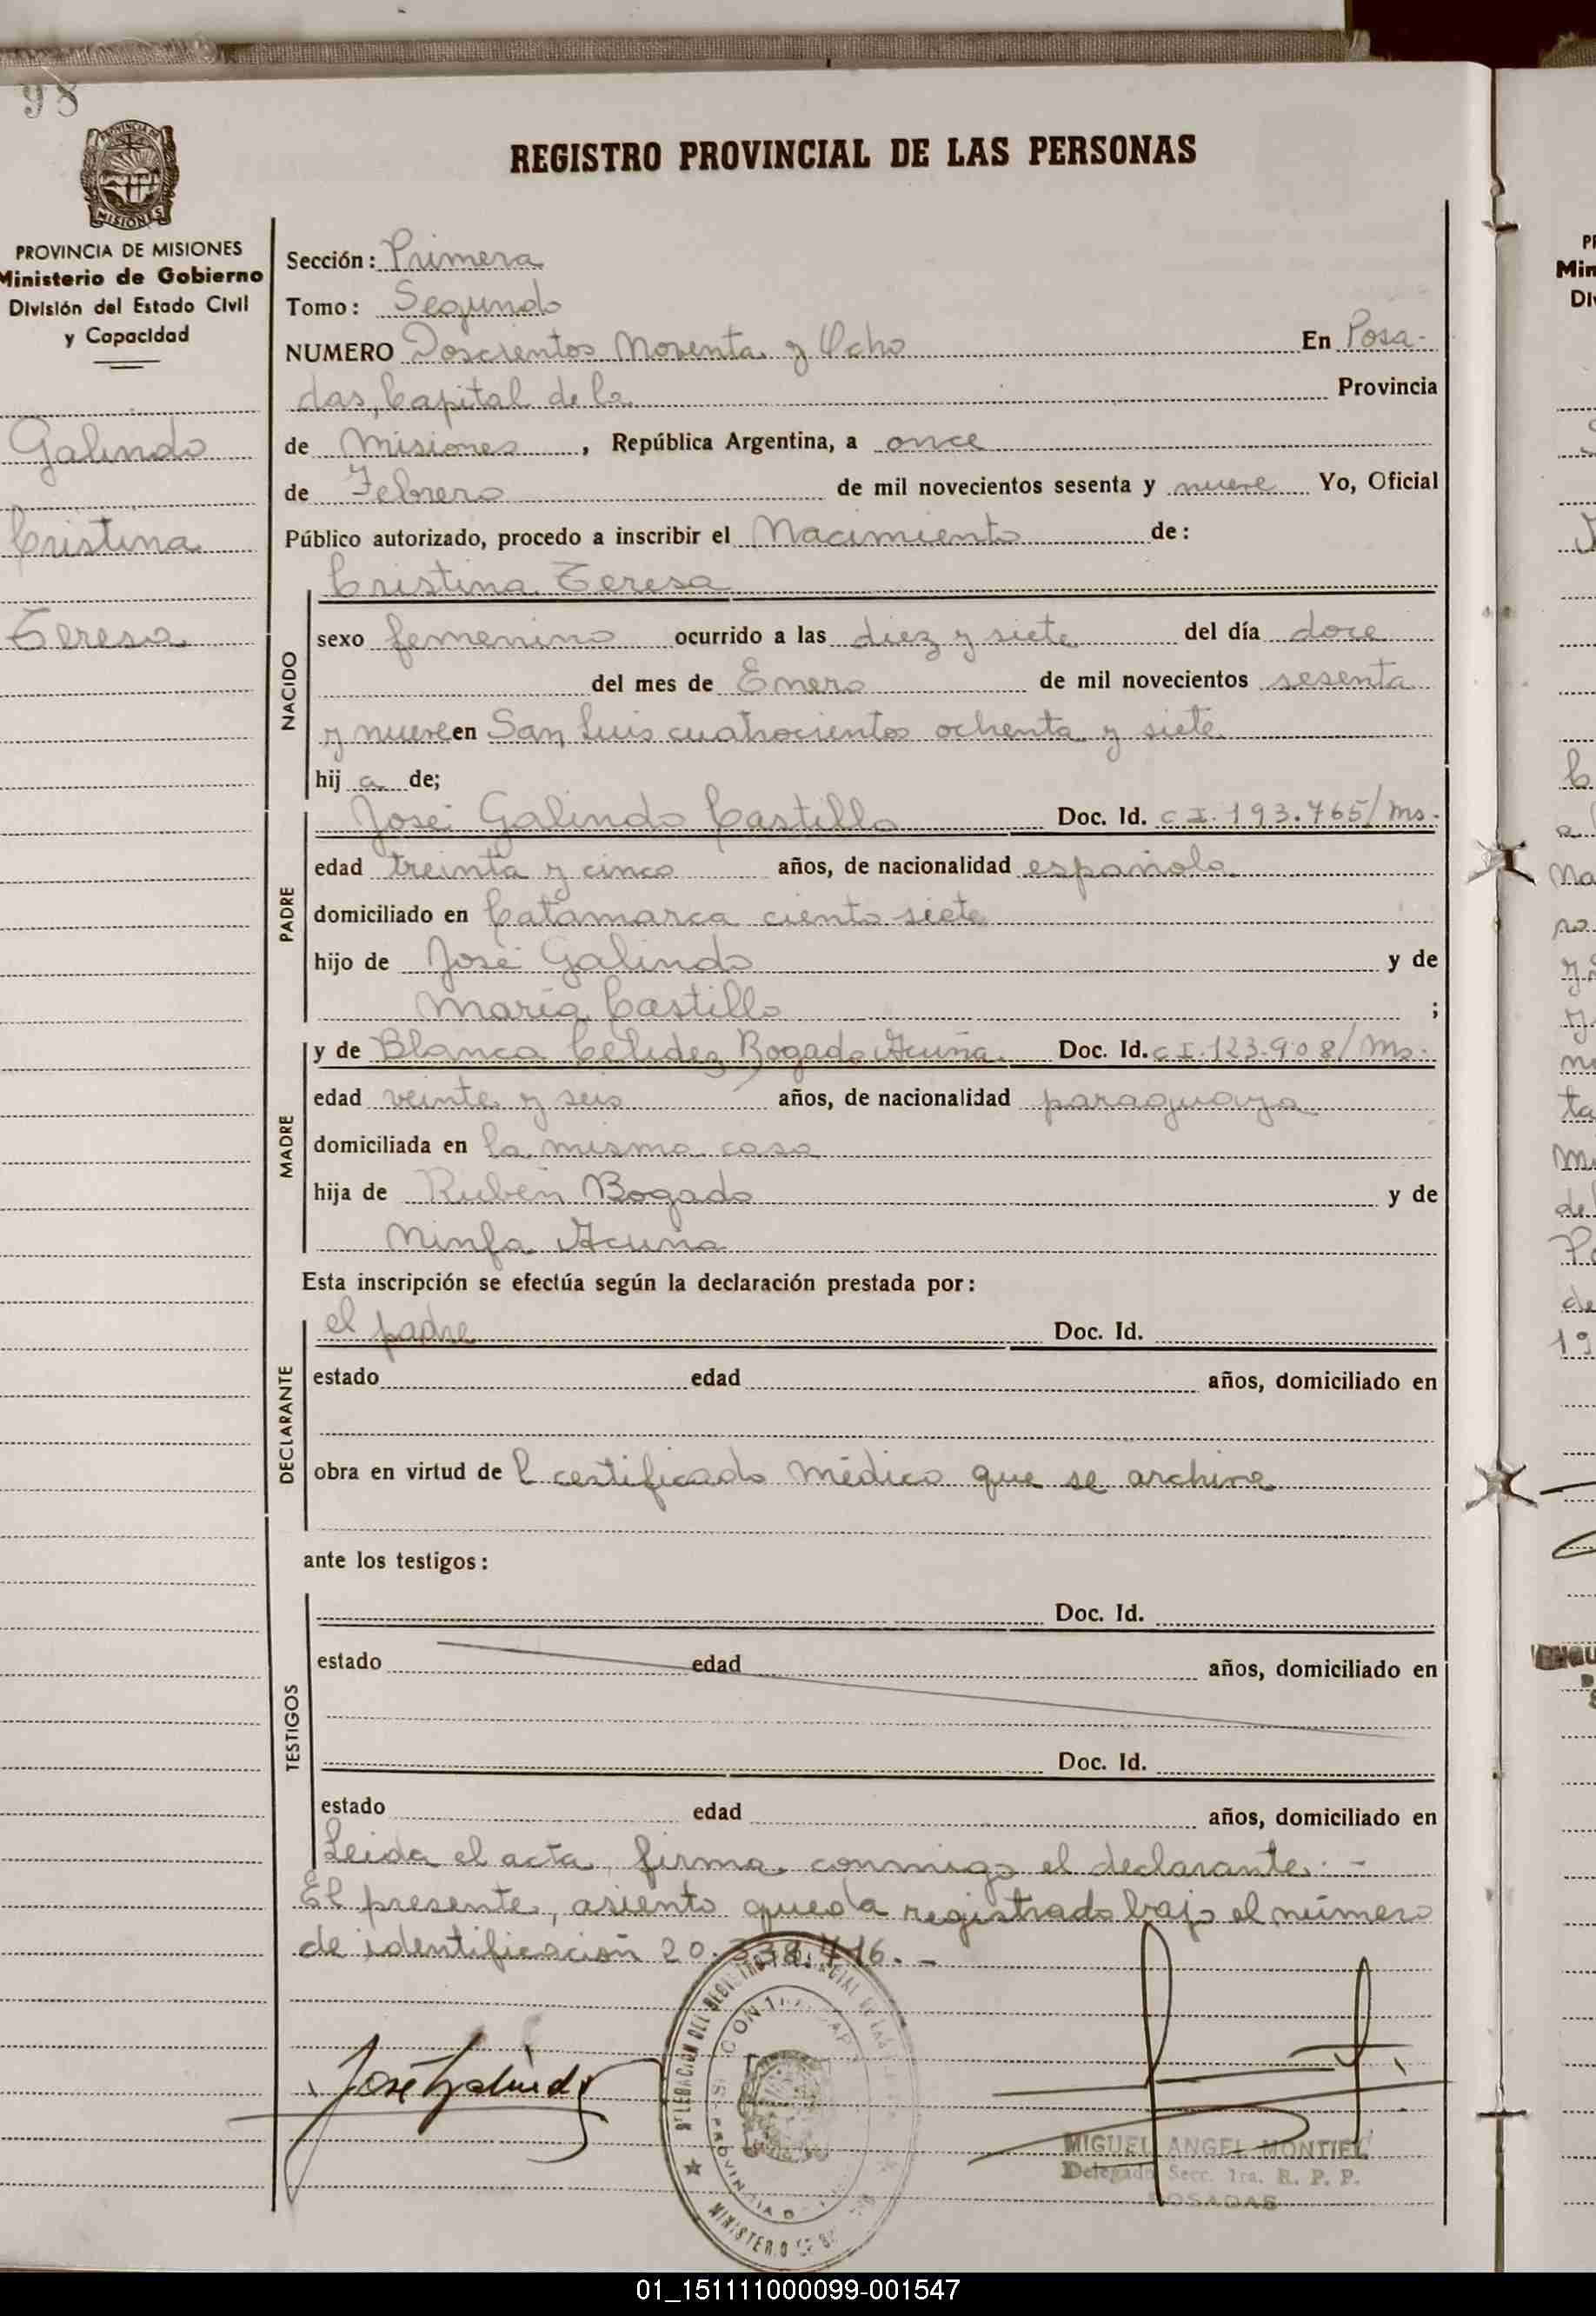 98
REGISTRO PROVINCIAL DE LAS PERSONAS
PROVINCIA DE MISIONES
Ministerio de Gobierno
División del Estado Civil
y Capacidad
Galindo
Cristina
Teresa
Sección: Primera
Tomo: Segundo
NUMERO Doscientos Noventa y Ocho En Posa-
das, Capital de la Provincia
de Misiones, República Argentina, a once
de Febrero de mil novecientos sesenta y nueve Yo, Oficial
Público autorizado, procedo a inscribir el Nacimiento de:
Cristina Teresa
NACIDO
sexo femenino ocurrido a las diez y siete del día doce
del mes de Enero de mil novecientos sesenta
y nueve en San Luis cuatrocientos ochenta y siete
hij a de;
PADRE
José Galindo Castillo Doc. Id. C.I. 193.765/Ms.
edad treinta y cinco años, de nacionalidad española
domiciliado en Catamarca ciento siete
hijo de José Galindo y de
María Castillo ;
MADRE
y de Blanca Bogado Acuña Doc. Id. C.I. 123.908/Ms.
edad veinte y seis años, de nacionalidad paraguaya
domiciliada en la misma casa
hija de Rubén Bogado y de
Ninfa Acuña
Esta inscripción se efectúa según la declaración prestada por:
DECLARANTE
el padre Doc. Id.
estado edad años, domiciliado en
obra en virtud de l certificado médico que se archiva
ante los testigos:
TESTIGOS
Doc. Id.
estado edad años, domiciliado en
Doc. Id.
estado edad años, domiciliado en
Leida el acta, firma conmigo el declarante.-
El presente, asiento queda registrado bajo el número
de identificación 20.338.416.-
José Galindo
MIGUEL ANGEL MONTIEL
Delegado Secc. 1ra. R. P. P.
POSADAS
01_151111000099-001547